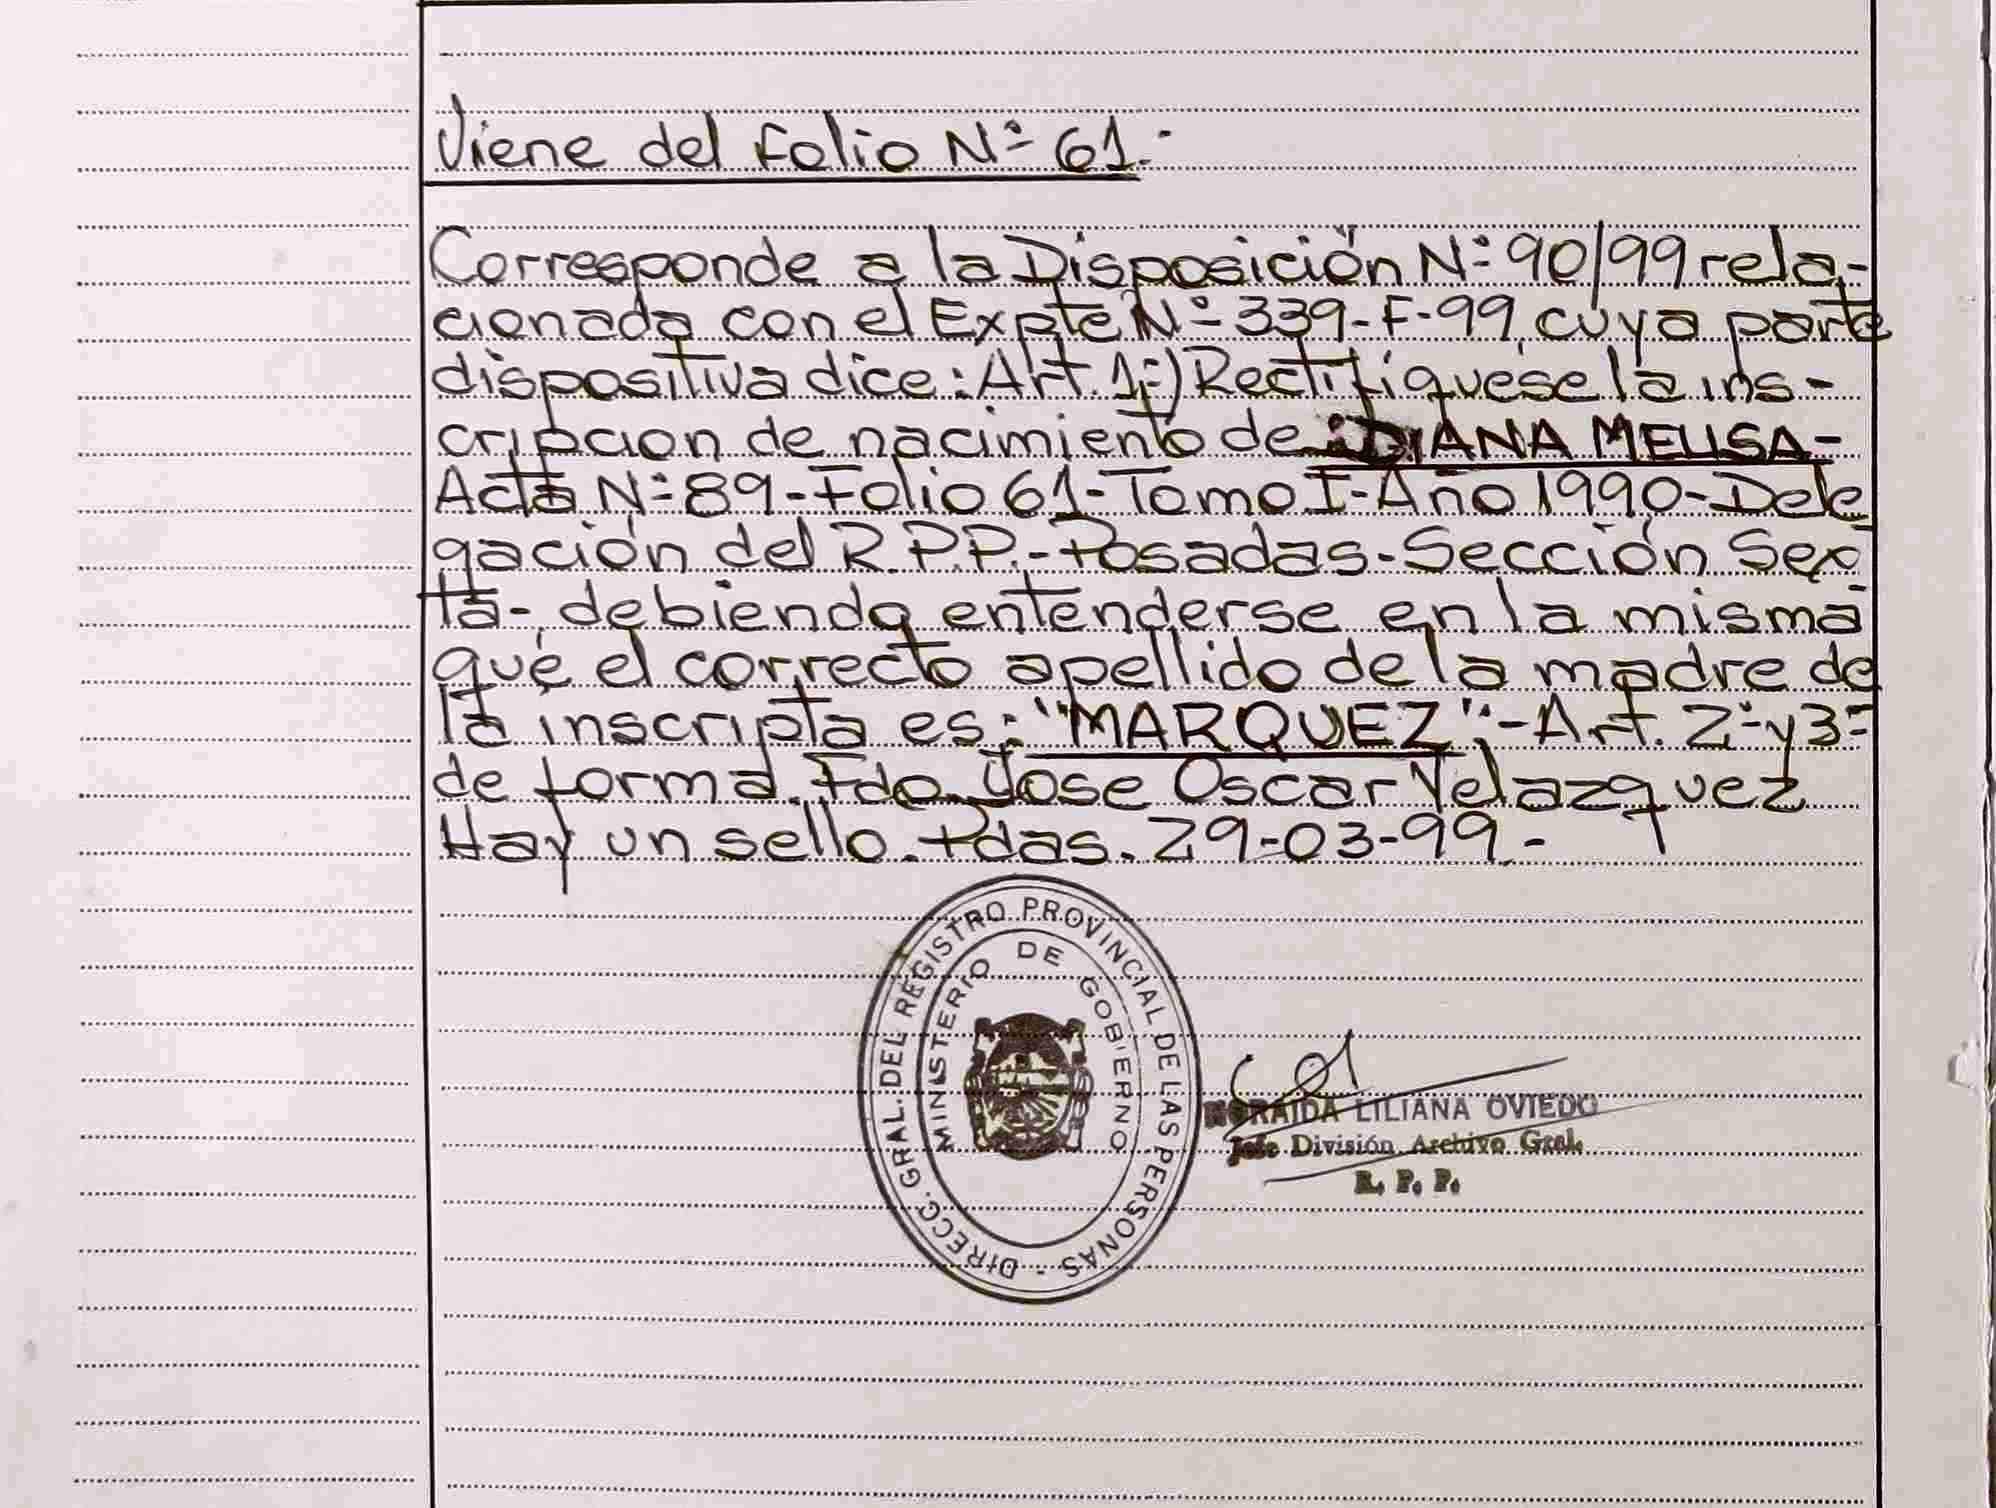 Viene del Folio Nº 61.-
Corresponde a la Disposición Nº 90/99 rela-
cionada con el Expte Nº 339-F-99, cuya parte
dispositiva dice: Art. 1º) Rectifíquese la ins-
cripcion de nacimiento de: DIANA MELISA-
Acta Nº 89-Folio 61-Tomo I-Año 1990-Dele
gación del R.P.P.-Posadas-Sección Sex
ta-, debiendo entenderse en la misma
que el correcto apellido de la madre de
la inscripta es: "MARQUEZ".-Art. 2º y 3º
de forma. Fdo. Jose Oscar Velazquez
Hay un sello. Pdas. 29-03-99.-
DIRECC. GRAL. DEL REGISTRO PROVINCIAL DE LAS PERSONAS -
MINISTERIO DE GOBIERNO
NORAIDA LILIANA OVIEDO
Jefe División Archivo Gral.
R. P. P.